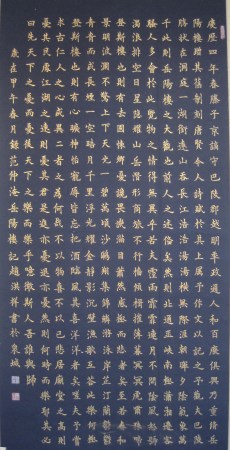 慶歷四年春滕子京謫守巴陵郡越明年政通人和百廢俱興乃重修岳
陽樓增其舊制刻唐賢今人詩賦於其上屬予作文以記之予觀夫巴陵
勝狀在洞庭一湖銜遠山吞長江浩浩湯湯橫無際涯朝暉夕陰氣象萬
千此則岳陽樓之大觀也前人之述備矣然則北通巫峽南極瀟湘遷客
騷人多會於此覽物之情得無異乎若夫霪雨霏霏連月不開陰風怒號
濁浪排空日星隱耀山岳潛形商旅不行檣傾楫摧薄暮冥冥虎嘯猿啼
登斯樓也則有去國懷鄉憂讒畏譏滿目蕭然感極而悲者矣至若春和
景明波瀾不驚上下天光一碧萬頃沙鷗翔集錦鱗游泳岸芷汀蘭郁郁
青青而或長煙一空皓月千里浮光耀金靜影沉璧漁歌互答此樂何極
登斯樓也則有心曠神怡寵辱皆忘把酒臨風其喜洋洋者矣嗟夫予嘗
求古仁人之心或異二者之為何哉不以物喜不以己悲居廟堂之高則
憂其民處江湖之遠則憂其君是進亦憂退亦憂然則何時而樂耶其必
曰先天下之憂而憂後天下之樂而樂乎噫微斯人吾誰與歸
歲在午春月錄范仲淹岳陽樓記趙洪祥書於泉城